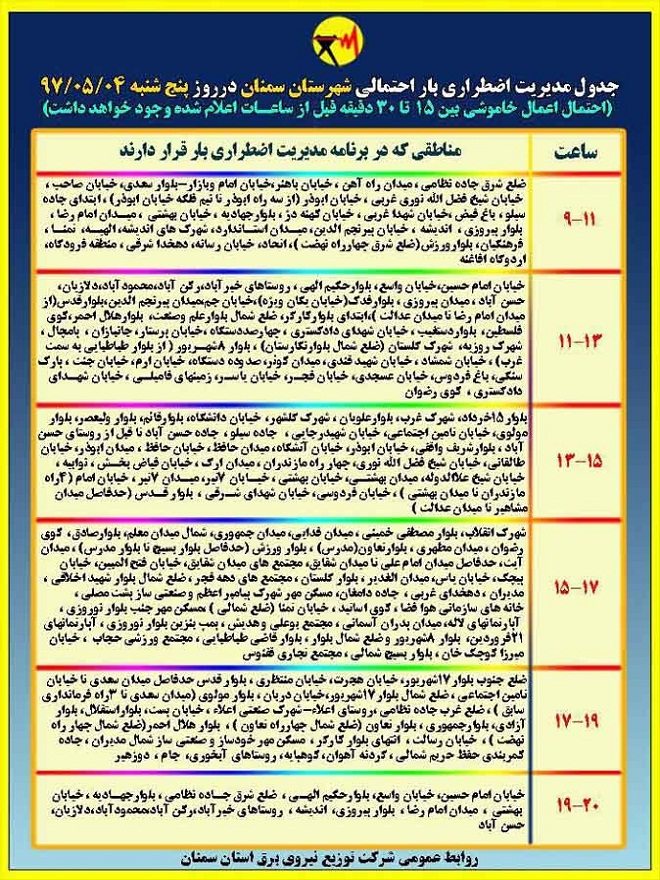 جدول مدیریت اضطراری بار احتمالی شهرستان سمنان درروز پنج شنبه ۹۷/۰۵/۰۴
(احتمال اعمال خاموشی بین ۱۵ تا ۳۰ دقیقه قبل از ساعــات اعلام شده وجود خواهد داشت)
ساعت
مناطقی که در برنامه مدیریت اضطراری بار قرار دارند
۹-۱۱
ضلع شرق جاده نظامی ، میدان راه آهن ، خیابان باهنر،خیابان امام وبازار-بلوار سعدی، خیابان صاحب ،
خیابان شیخ فضل الله نوری غربی ، خیابان ابوذر (از سه راه ابوذر تا نیم فلکه خیابان ابوذر) ، ابتدای جاده
سیلو ، باغ فیض، خیابان شهدا غربی ، خیابان کهنه دژ ، بلوارجهادیه ، خیابان بهشتی ، میـدان امام رضا ،
بلوار پیروزی ، اندیشه ، خیابان پیرنجم الدین،میدان استاندارد، شهرک های اندیشه،الهیـه، نمنـا ،
فرهنگیان، بلوارورزش(ضلع شرق چهارراه نهضت )، اتحاد، خیابان رسانه، دهخدا شرقی ، منطقه فرودگاه،
اردوگاه افاغنه
۱۱-۱۳
خیابان امام حسین،خیابان واسع، بلوارحکیم الهی ، روستاهای خیرآباد،رکن آباد،محمودآباد،دلازیان،
حسن آباد ، میدان پیروزی ، بلوارفدک(خیابان یگان ویژه)،خیابان جم،میدان پیرنجم الدین،بلوارقدس(از
میدان امام رضا تا میدان عدالت )،ابتدای بلوارکارگر، ضلع شمال بلوارعلم وصنعت، بلوارهلال احمر،کوی
فلسطین، بلواردستغیب ، خیابان شهدای دادگستری ، چهارصددستگاه، خیابان پرستار، جانبازان ، بامچال ،
شهرک روزیه، شهرک گلستان (ضلع شمال بلوارنگارستان) ، بلوار ۸شهـریور ( از بلوار طباطبایی به سمت
غرب) ، خیابان شمشاد ، خیابان شهید قندی، میدان کوثر، صدوده دستگاه، خیابان ارم، خیابان جنت ، پارک
سنگی، باغ فردوس، خیابان عسجدی، خیابان فجـر، خیابان یاسـر، زمینهای فامیلـی ، خیابان شهـدای
دادگستری ، کوی رضوان
۱۳-۱۵
بلوار ۱۵خرداد، شهرک غرب، بلوارعلویان ، شهرک گلشهر، خیابان دانشگاه، بلوارقائم، بلوار ولیعصر، بلوار
مولوی، خیابان تامین اجتماعی، خیابان شهیدرجایی ، جاده سیلو ، جاده حسن آباد تا قبل از روستای حسن
آباد ، بلوارشریف واقفی، خیابان ابوذر، خیابان آتشگاه، میدان حافظ، خیابان حافظ ، میدان ابوذر، خیابان
طالقانی، خیابان شیخ فضل الله نوری، چهار راه مازندران ، میدان ارک ، خیابان فیاض بخش ، توابیه ،
خیابان شیخ علاالدوله، میدان بهشتـی، خیابان بهشتی ، خیـابان ۷تیر، میـدان ۷تیر، خیابان امام (۴راه
مازندران تا میدان بهشتی ) ، خیابان فردوسی، خیابان شهدای شـرقی ، بلوار قـدس (حدفاصل میدان
مشاهیر تا میدان عدالت )
۱۵-۱۷
شهرک انقلاب، بلوار مصطفی خمینی ، میدان فدایی، میدان جمهوری، شمال میدان معلم، بلوارصادق، کوی
رضوان، میدان مطهری ، بلوارتعاون(مدرس) ، بلوار ورزش (حدفاصل بلوار بسیج تا بلوار مدرس) ، میدان
آیت، حدفاصل میدان امام علی تا میدان شقایق، مجتمع های میدان شقایق، خیابان فتح المبین، خیابان
پیچک، خیابان یاس، میدان الغدیر ، بلوار گلستان ، مجتمع های دهه فجر ، ضلع شمال بلوار شهید اخلاقی ،
مدیران ، دهخدای غربی ، جاده دامغان، مسکن مهر شهرک پیامبر اعظم و صنعتی ساز پشت مصلی ،
خانه های سازمانی هوا فضا ، کوی اساتید ، خیابان نمنا (ضلع شمالی ) ،مسکن مهر جنب بلوار نوروزی ،
آپارتمانهای لاله، میدان پدران آسمانی ، مجتمع بوعلی و هدیش ، پمپ بنزین بلوار نوروزی ، آپارتمانهای
۲۱فروردین، بلوار ۸شهریور و ضلع شمال بلوار ، بلوار قاضی طباطبایی ، مجتمع ورزشی حجاب ، خیابان
میرزا کوچک خان ، بلوار بسیج شمالی ، مجتمع تجاری ققنوس
۱۷-۱۹
ضلع جنوب بلوار ۱۷شهریور، خیابان هجرت، خیابان منتظری ، بلوار قدس حدفاصل میدان سعدی تا خیابان
تامین اجتماعی ، ضلع شمال بلوار ۱۷شهریور،خیابان دربان ، بلوار مولوی (میدان سعدی تا ۳راه فرمانداری
سابق ) ، ضلع غرب جاده نظامی ،روستای اعلاء- شهرک صنعتی اعلاء ، خیابان پست، بلواراستقلال، بلوار
آزادی، بلوارجمهوری ، بلوار تعاون (ضلع شمال چهارراه تعاون ) ، بلوار هلال احمر(ضلع شمال چهار راه
نهضت ) ، خیابان رسالت ، انتهای بلوار کارگر ، مسکن مهر خودساز و صنعتی ساز شمال مدیران ، جاده
کمربندی حفظ حریم شمالی ، گردنه آهوان، کوهپایه، روستاهای آبخوری، جام ، دوزهیر
۱۹-۲۰
خیابان امام حسین، خیابان واسع، بلوارحکیم الهـی ، ضلع شرق جـاده نظامی ، بلوارجهـادیه ، خیابان
بهشتی ، میدان امام رضا ، بلوار پیروزی، اندیشه ، روستاهای خیرآباد،رکن آباد،محمودآباد،دلازیان،
حسن آباد
روابط عمومی شرکت توزیع نیروی برق استان سمنان